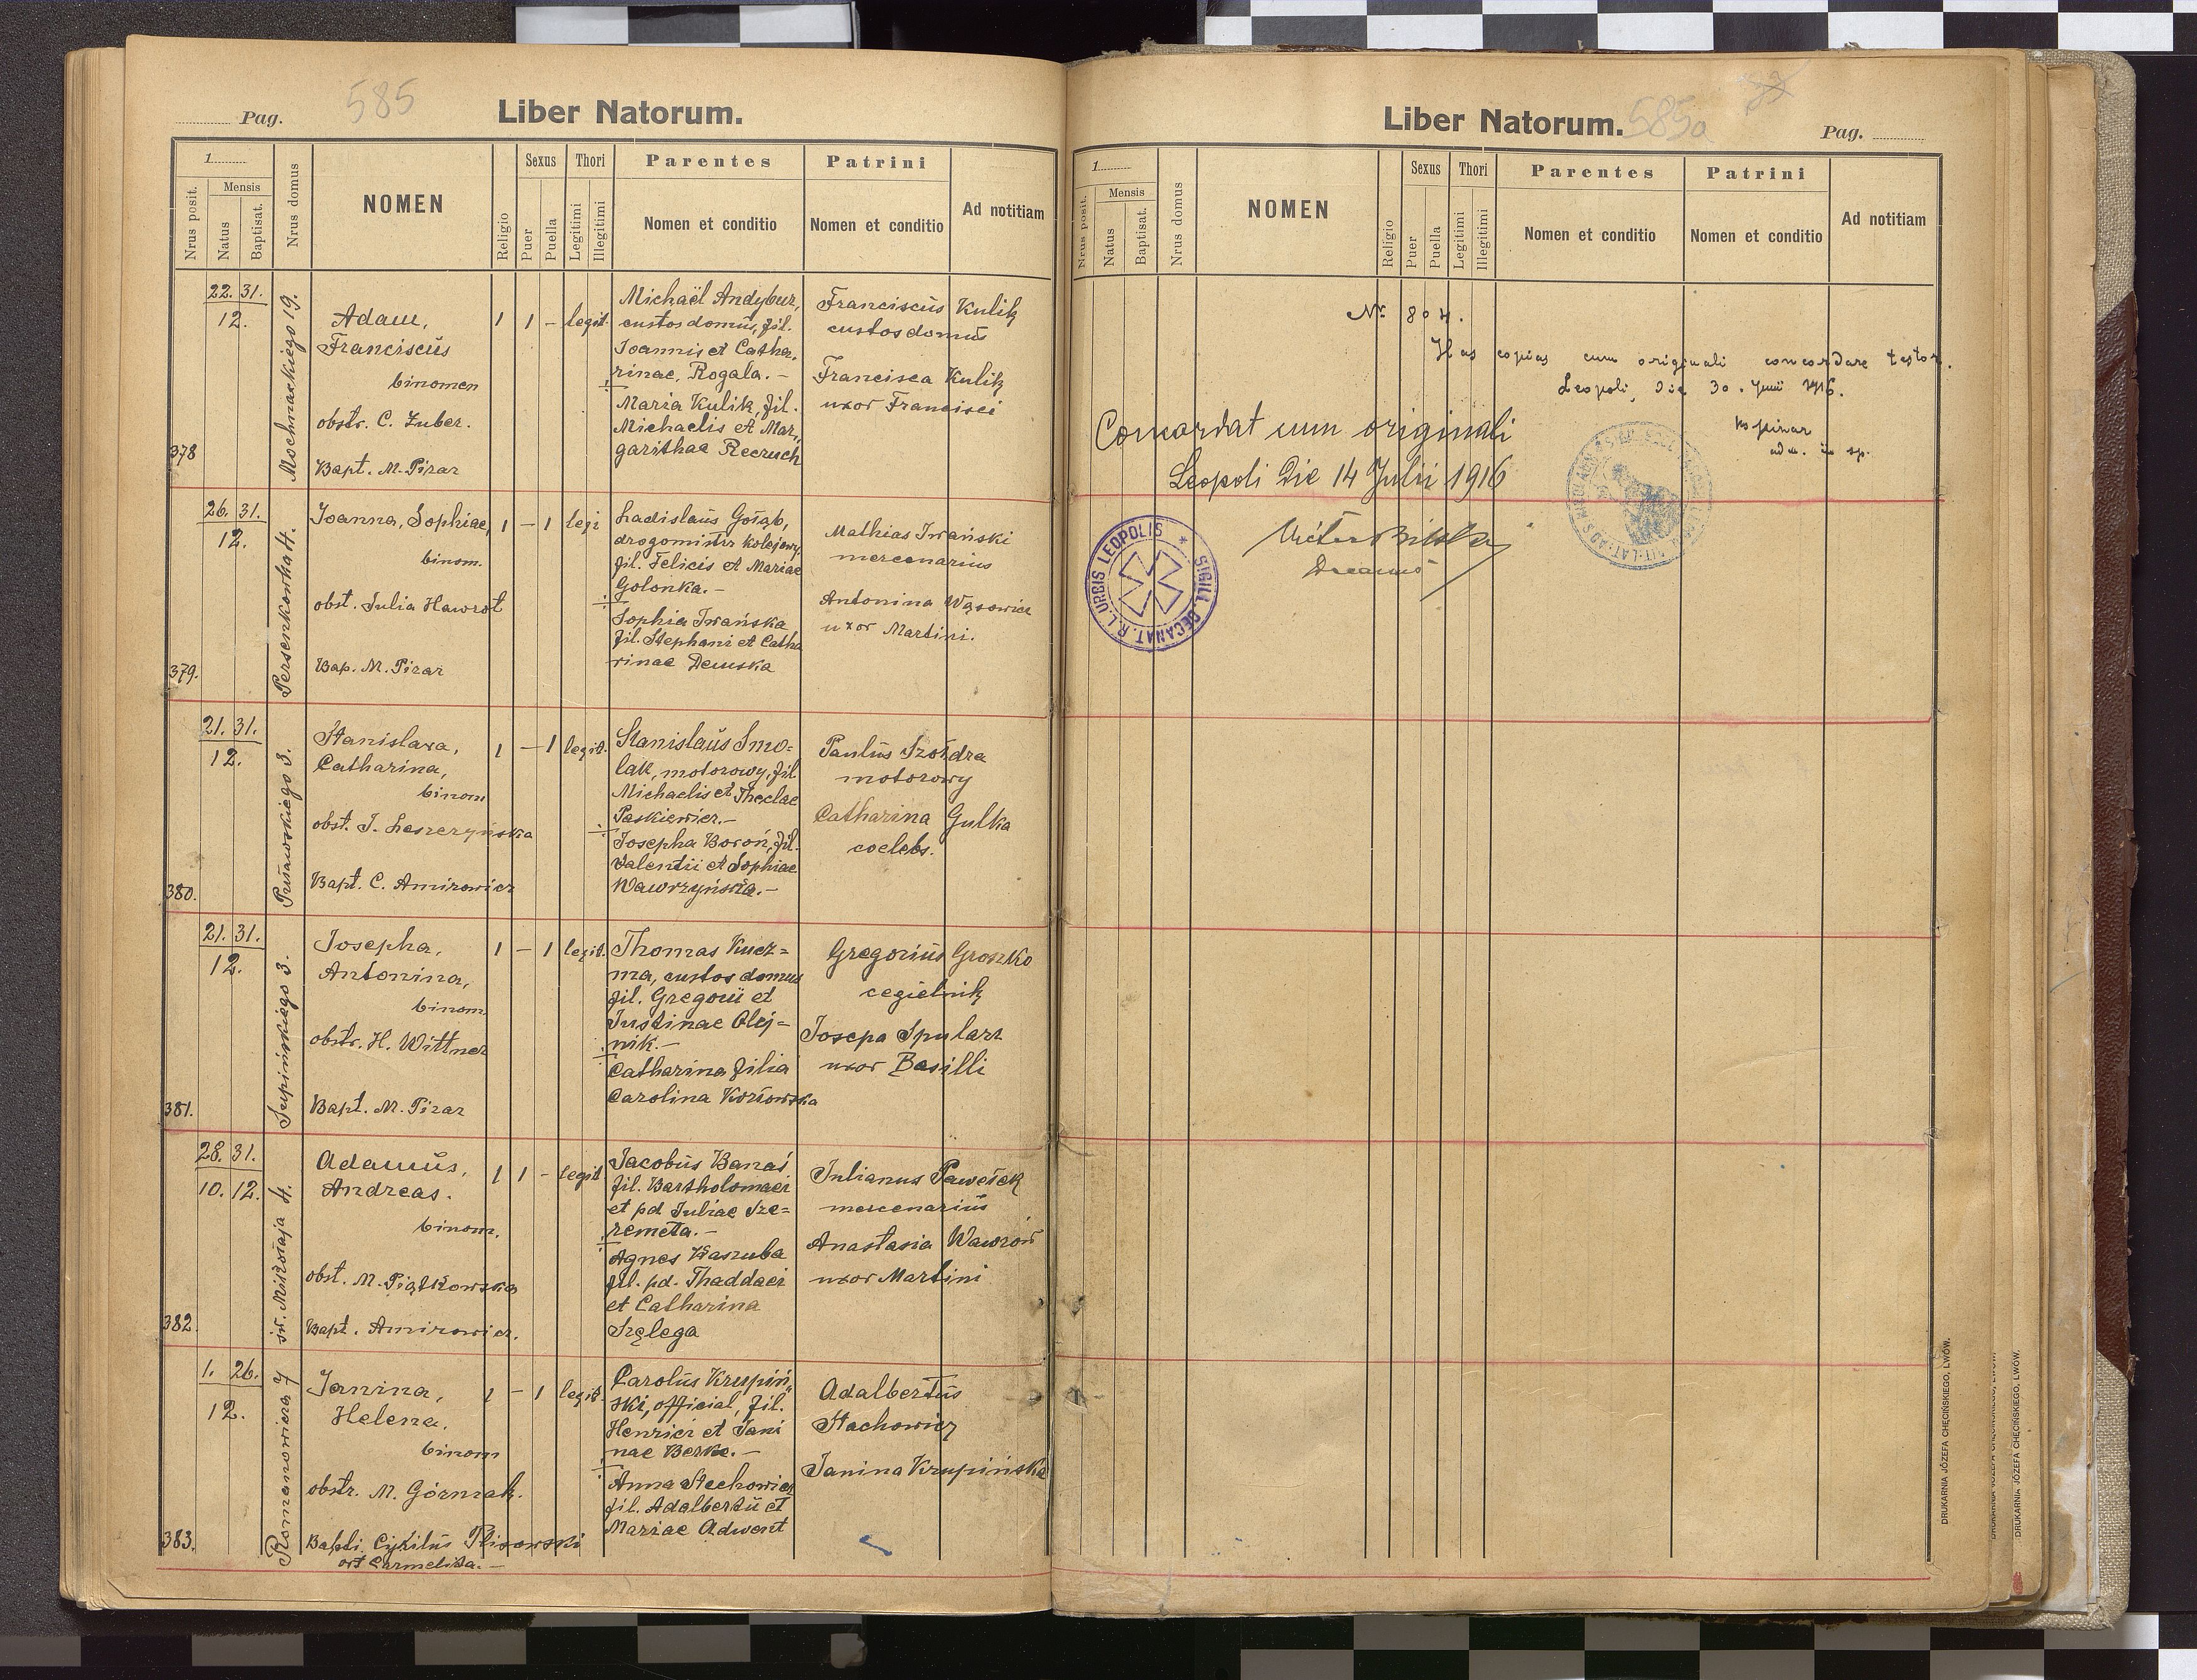 Pag.
585
Liber Natorum.
1
Nrus posit.
Mensis
Natus
Baptisat.
Nrus domus
NOMEN
Religio
Sexus
Puer
Puella
Thori
Legitimi
Illegitimi
Parentes
Nomen et conditio
Patrini
Nomen et conditio
Ad notitiam
378
22. 31.
12.
Mochnackiego 19.
Adam,
Franciscus
binomen
obstr. C. Zuber.
Bapt. M. Pirar
1 1 - legit.
Michaël Andybur,
custos domus, fil.
Joannis et Catha,
rinae, Rogala. -
Maria Kulik, fil.
Michaelis et Mar,
garithae Recruch
Franciscus Kulik
custos domus
Francisca Kulik
uxor Francisci
379.
26. 31.
12.
Persenkowka 4.
Joanna, Sophiae,
binom.
obst. Julia Hawrot
Bap. M. Pirar
1 - 1 legi
Ladislaus Gołąb,
drogomistrz kolejowy,
fil. Felicis et Mariae
Golonka. -
Sophia Iwańska
fil. Stephani et Catha
rinae Demska
Mathias Iwański
mercenarius
Antonina Wąsowicz
uxor Martini.
380.
21. 31.
12.
Pułaskiego 3.
Stanislava,
Catharina,
binom
obst. J. Leszczyńska
Bapt. C. Amirowicz
1 - 1 legit.
Stanislaus Smo=
lak, motorowy, fil.
Michaelis et Theclae
Paskiewicz. -
Josepha Boroń, fil.
Valentii et Sophiae
Wawrzyńska. -
Paulus Szołdra
motorowy
Catharina Gulka
coelebs.
381.
21. 31.
12.
Supińskiego 3.
Josepha,
Antonina,
binom.
obstr. H. Wittner
Bapt. M. Pirar
1 - 1 legit.
Thomas Kucz=
ma, custos domus
fil. Gregorii et
Justinae Olej=
nik. -
Catharina filia
Carolina Kozłowska
Gregorius Groszko
cegielnik
Josepa Spularz
uxor Basilli
382.
28. 31.
10. 12.
św. Mikołaja 4.
Adamus,
Andreas.
binom.
obst. M. Piątkowska
Bapt. Amirowicz.
1 1 - legit
Jacobus Banaś
fil. Bartholomaei
et pd Juliae Sze=
remeta. -
Agnes Kaszuba
fil. pd. Thaddaei
et Catharina
Szelega
Julianus Pawełek
mercenarius
Anastasia Wawzów
uxor Martini
383.
1. 26.
12.
Romanowicza 7
Janina,
Helena,
binom
obstr. M. Górniak.
Bapti. Cyrilus Plisowski
ord Carmelita. -
1 - 1 legit.
Carolus Krupiń,
ski, official, fil.
Henrici et Jani
nae Berke. -
Anna Stechowicz
fil. Adalbertii et
Mariae Adwent
Adalbertus
Stachowicz
Janina Krupińska
Liber Natorum.
585a
Pag.
1
Nrus posit.
Mensis
Natus
Baptisat.
Nrus domus
NOMEN
Religio
Sexus
Puer
Puella
Thori
Legitimi
Illegitimi
Parentes
Nomen et conditio
Patrini
Nomen et conditio
Ad notitiam
Nr. 804.
Has copias cum originali concordare testor.
Leopoli, die 30. Junii 1916.
Concordat cum originali
Leopoli die 14 Julii 1916
Decanus
SIGILL. DECANAT. R. L. URBIS LEOPOLIS
DRUKARNIA JÓZEFA CHĘCIŃSKIEGO, LWÓW.
DRUKARNIA JÓZEFA CHĘCIŃSKIEGO, LWÓW.
DRUKARNIA JÓZEFA CHĘCIŃSKIEGO, LWÓW.